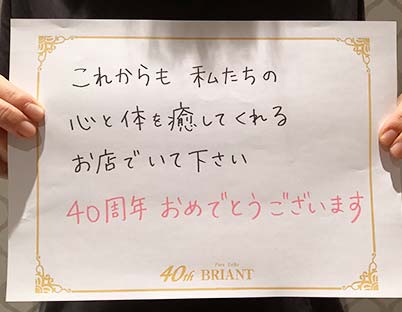 これからも 私たちの
心と体を癒してくれる
お店でいて下さい
40周年 おめでとうございます
40th BRIANT